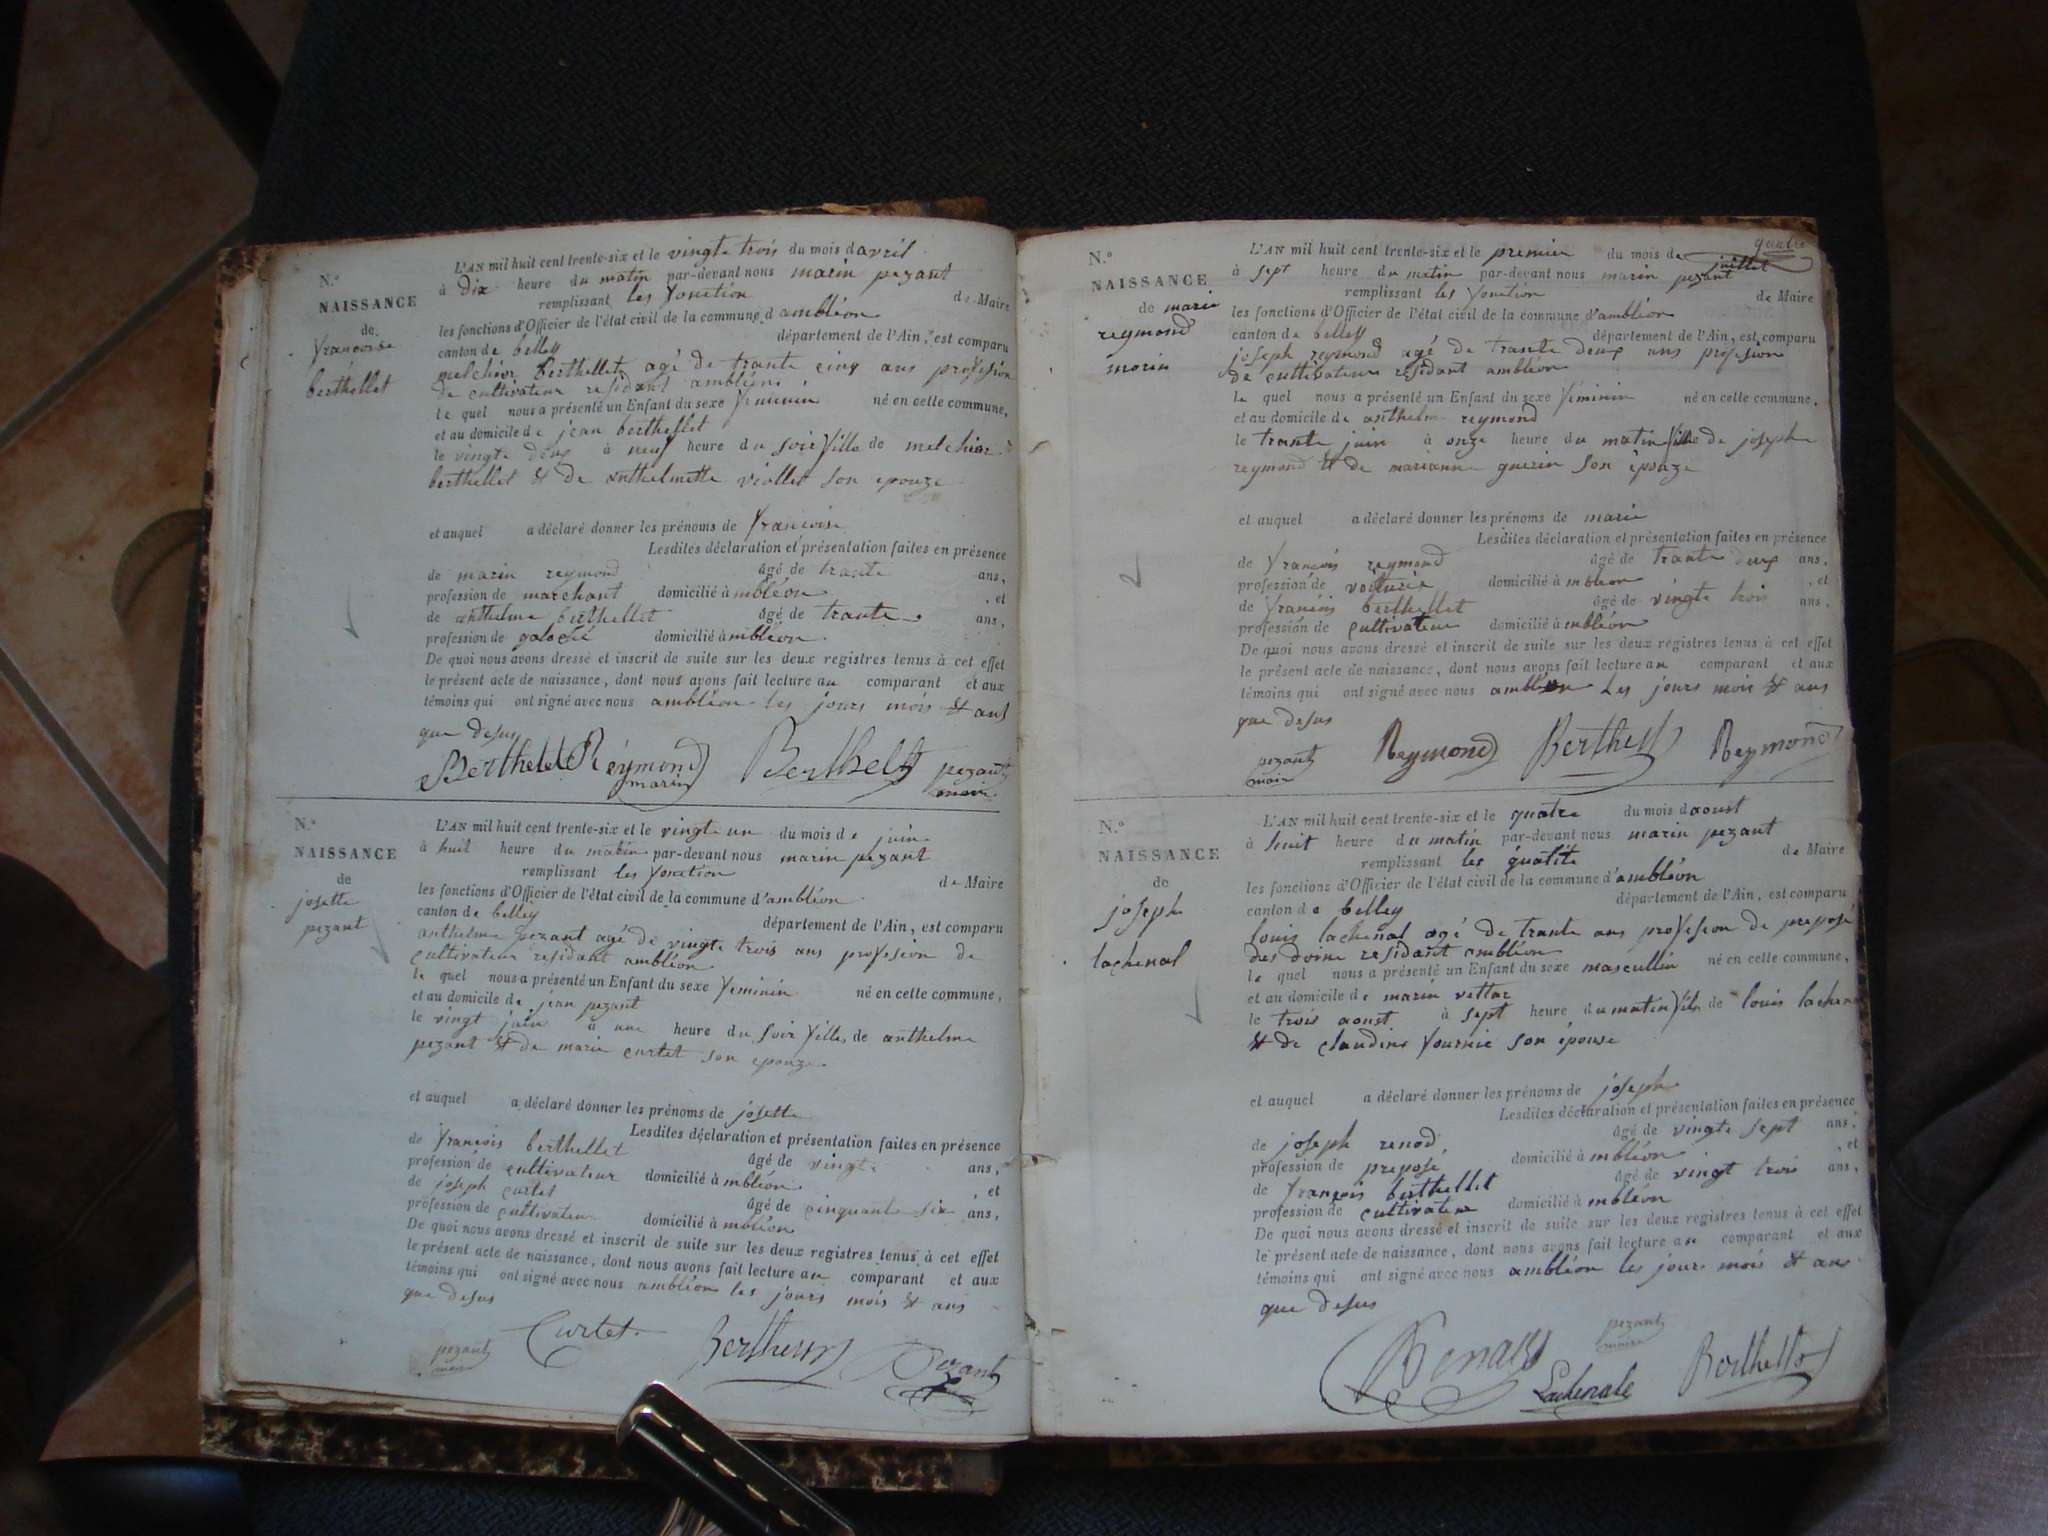 L'AN mil huit cent trente-six et le vingte trois du mois d avril
N.° à dix heure du matin par-devant nous marin pezant
NAISSANCE remplissant les fonction de Maire
de les fonctions d'Officier de l'état civil de la commune d ambléon
francoise canton de belley département de l'Ain, est comparu
berthellet melchior berthellet agé de trante cinq ans profesion
de cultivateur residant ambléon
le quel nous a présenté un Enfant du sexe feminin né en cette commune,
et au domicile de jean berthellet
le vingte deux à neuf heure du soir fille de melchior
berthellet & de anthelmette viollet son epouze
et auquel a déclaré donner les prénoms de francoise
Lesdites déclaration et présentation faites en présence
de marin reymond âgé de trante ans,
profession de marchant domicilié à mbléon , et
de anthelme berthellet âgé de trante ans,
profession de domicilié à mbléon
De quoi nous avons dressé et inscrit de suite sur les deux registres tenus à cet effet
le présent acte de naissance, dont nous avons fait lecture au comparant et aux
témoins qui ont signé avec nous ambléon les jours mois & ans
que desus
Berthelet Reymond marin Berthelet pezant maire
N.° L'AN mil huit cent trente-six et le vingte un du mois de juin
NAISSANCE à huit heure du matin par-devant nous marin pezant
remplissant les fonction de Maire
de les fonctions d'Officier de l'état civil de la commune d'ambléon
josette canton de belley département de l'Ain, est comparu
pezant anthelme pezant agé de vingte trois ans profesion de
cultivateur residant ambléon
le quel nous a présenté un Enfant du sexe feminin né en cette commune,
et au domicile de jean pezant
le vingt juin à une heure du soir fille de anthelme
pezant & de marie curtet son epouze
et auquel a déclaré donner les prénoms de josette
Lesdites déclaration et présentation faites en présence
de françois berthellet âgé de vingte ans,
profession de cultivateur domicilié à mbléon , et
de joseph curtet âgé de cinquante six ans,
profession de cultivateur domicilié à mbléon
De quoi nous avons dressé et inscrit de suite sur les deux registres tenus à cet effet
le présent acte de naissance, dont nous avons fait lecture au comparant et aux
témoins qui ont signé avec nous ambléon les jours mois & ans
que desus
pezant maire Curtet Pezant
quatre
L'AN mil huit cent trente-six et le premier du mois de juillet
N.° à sept heure du matin par-devant nous marin pezant
NAISSANCE remplissant les fonction de Maire
de marie les fonctions d'Officier de l'état civil de la commune d'ambléon
reymond canton de belley département de l'Ain, est comparu
joseph reymond agé de trante deux ans profesion
morin de cultivateur residant ambléon
le quel nous a présenté un Enfant du sexe feminin né en cette commune,
et au domicile de anthelm reymond
le trante juin à onze heure du matin fille de joseph
reymond & de marianne guerin son épouze
et auquel a déclaré donner les prénoms de marie
Lesdites déclaration et présentation faites en présence
de françois reymond âgé de trante deux ans,
profession de voiturié domicilié à mbléon , et
de françois berthellet âgé de vingte trois ans,
profession de cultivateur domicilié à mbléon
De quoi nous avons dressé et inscrit de suite sur les deux registres tenus à cet effet
le présent acte de naissance, dont nous avons fait lecture au comparant et aux
témoins qui ont signé avec nous ambléon les jours mois & ans
que desus
pezant maire Reymond Reymond
N.° L'AN mil huit cent trente-six et le quatre du mois d aoust
NAISSANCE à huit heure du matin par-devant nous marin pezant
remplissant les qualité de Maire
de les fonctions d'Officier de l'état civil de la commune d'ambléon
joseph canton de belley département de l'Ain, est comparu
lachenal louis lachenal agé de trante ans profesion de preposé
des doine residant ambléon
le quel nous a présenté un Enfant du sexe mascullin né en cette commune,
et au domicile de marin vettar
le trois aoust à sept heure du matin fils de louis lachenal
& de claudine fournié son épouse
et auquel a déclaré donner les prénoms de joseph
Lesdites déclaration et présentation faites en présence
de joseph renod âgé de vingte sept ans,
profession de preposé domicilié à mbléon , et
de françois berthellet âgé de vingt trois ans,
profession de cultivateur domicilié à mbléon
De quoi nous avons dressé et inscrit de suite sur les deux registres tenus à cet effet
le présent acte de naissance, dont nous avons fait lecture au comparant et aux
témoins qui ont signé avec nous ambléon les jours mois & ans
que desus
pezant maire Lachenale